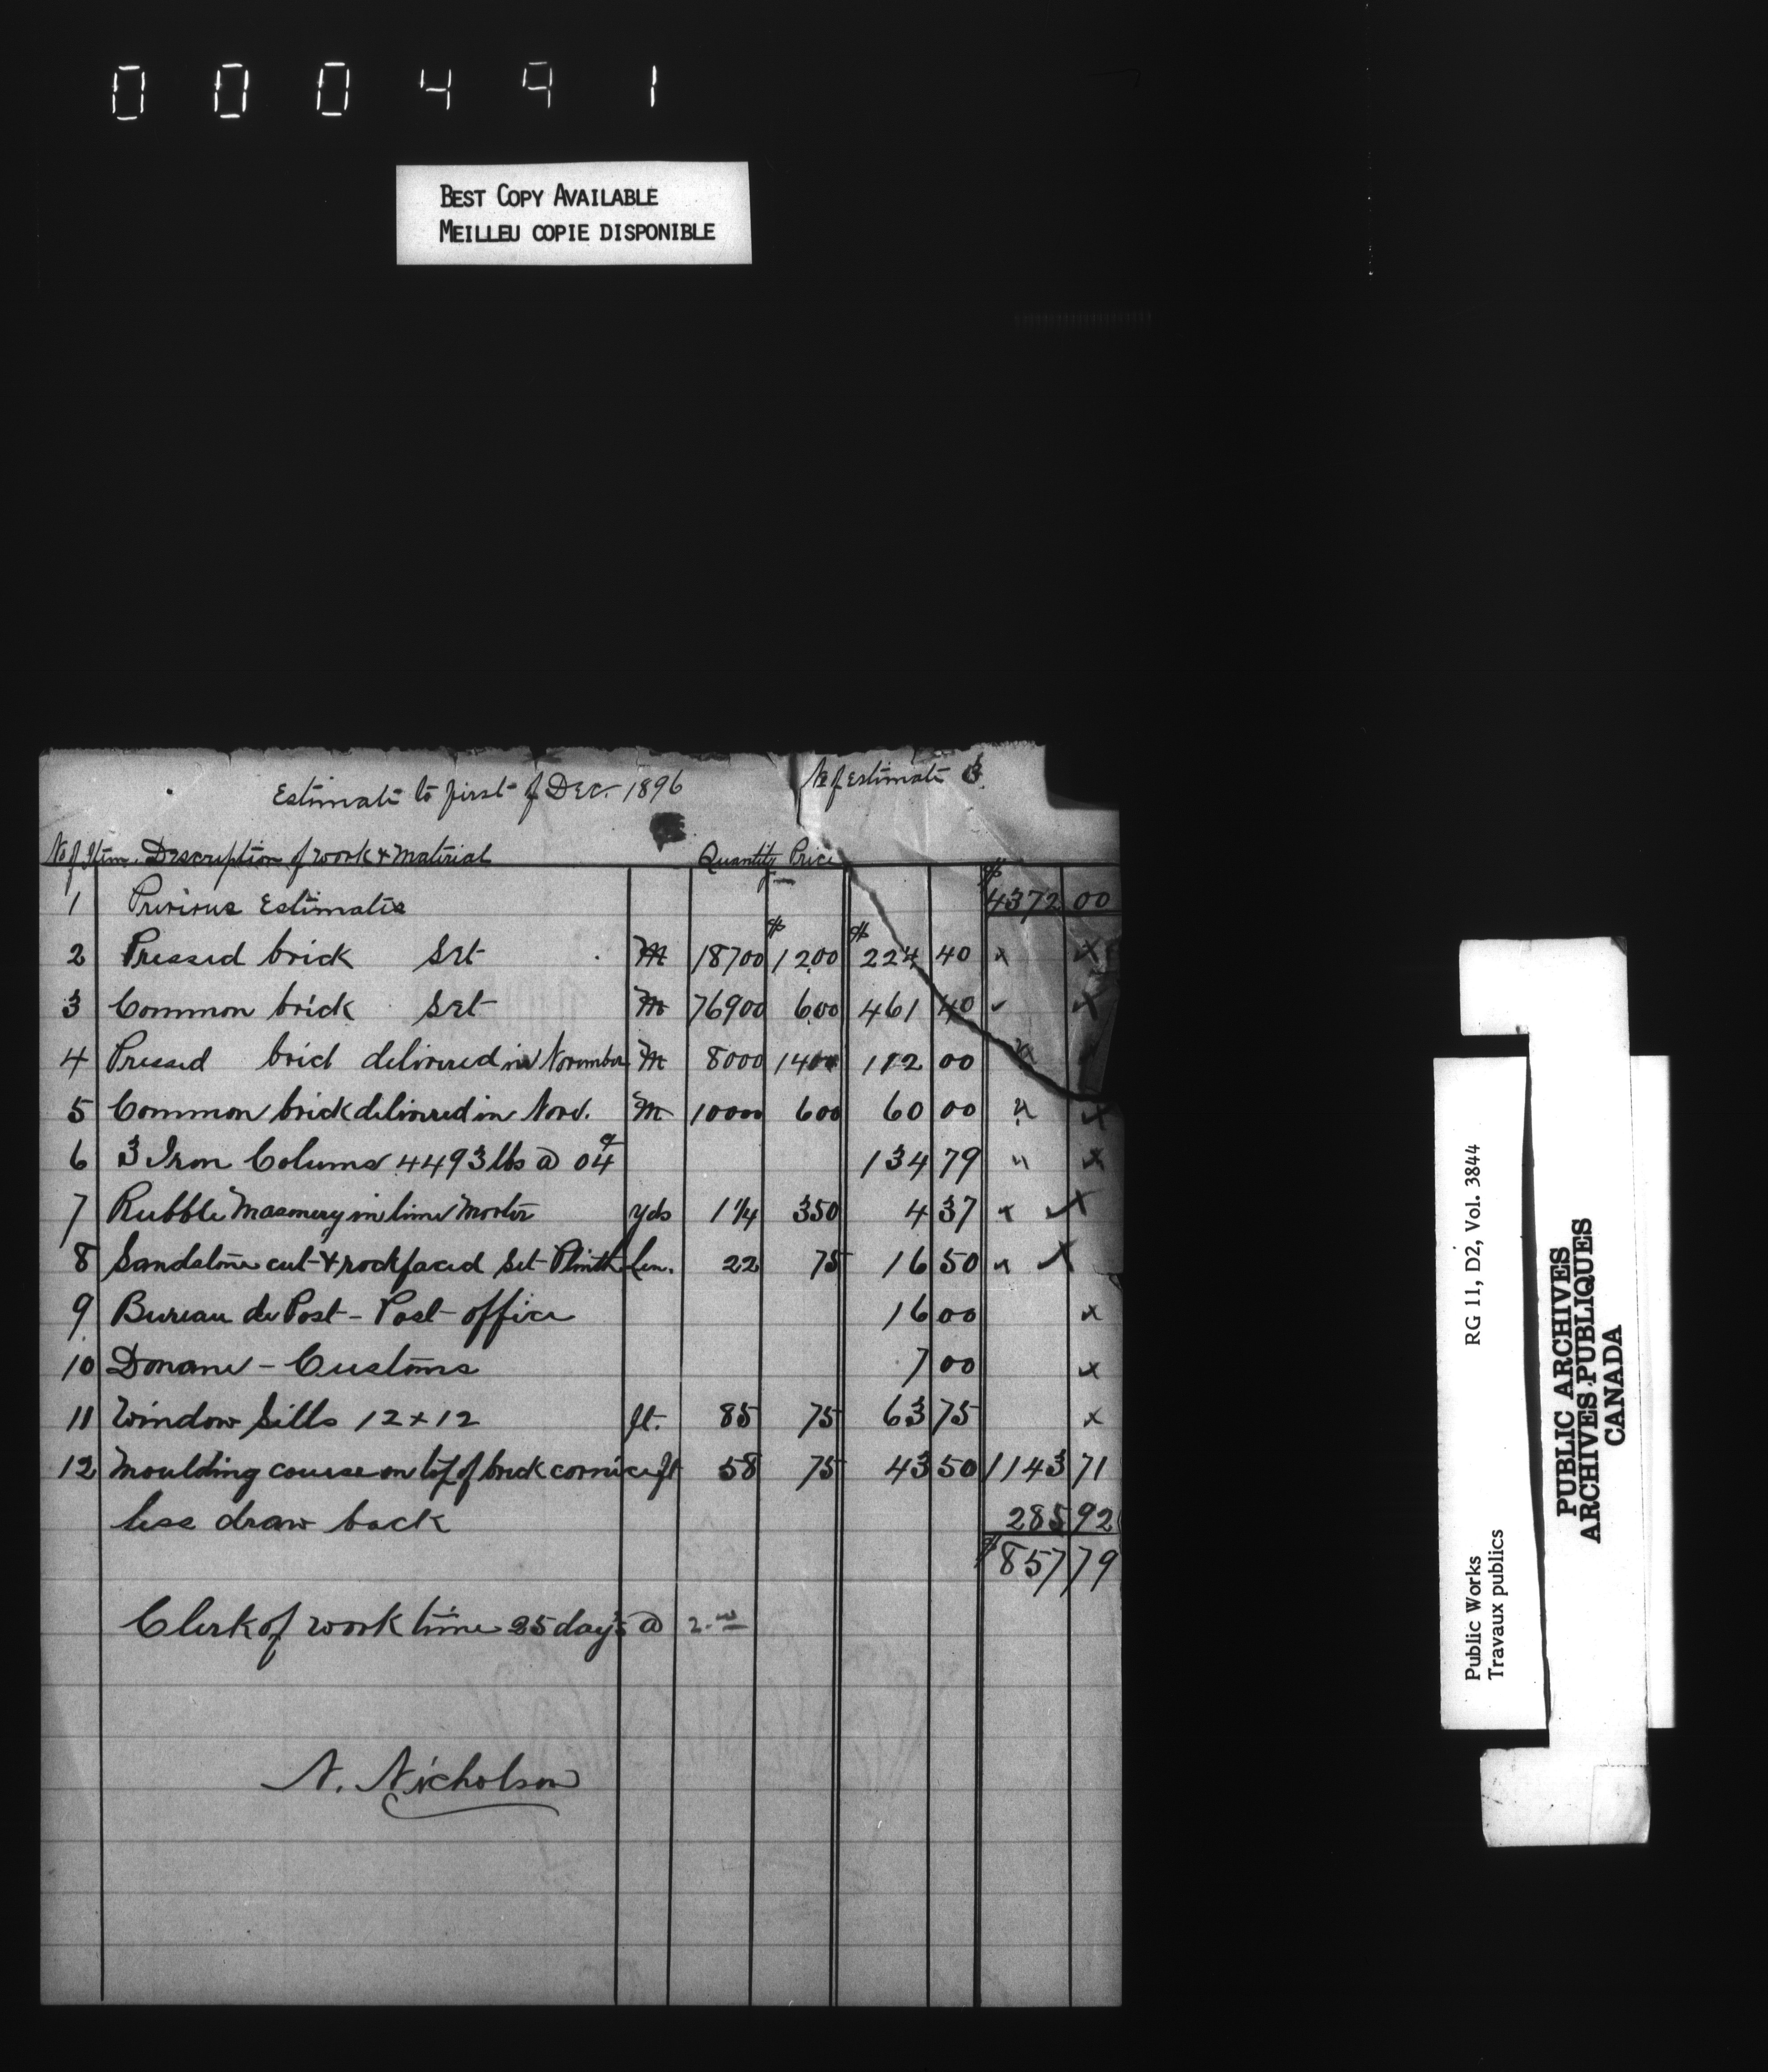 000491
BEST COPY AVAILABLE
MEILLEU COPIE DISPONIBLE
Estimate to first of Dec. 1896
No of Estimate 3.
No of Item. Description of work & Material Quantity Price
1 Previous Estimates $ 4372 00
2 Pressed brick Set M 18700 $ 12.00 $ 224 40 " x
3 Common brick Set M 76900 6.00 461 40 " x
4 Pressed brick delivered in November M 8000 1400 112 00 " x
5 Common brick delivered in Nov. M 10000 600 60 00 " x
6 3 Iron Colums 4493 lbs @ 04 134 79 " x
7 Rubble Masonery in lime Morter yds 1 1/4 350 4 37 " x
8 Sandstone cut & rockfaced Set Plinth Lin. 22 75 16 50 " x
9 Bureau de Post - Post office 16 00 x
10 Douane - Customs 7 00 x
11 Window Sills 12 x 12 ft. 85 75 63 75 x
12 Moulding course on top of brick cornice ft 58 75 43 50 1143 71
less draw back 285 92
$ 857 79
Clerk of work time 25 days @ 2.00
N. Nicholson
Public Works RG 11, D2, Vol. 3844
Travaux publics
PUBLIC ARCHIVES
ARCHIVES PUBLIQUES
CANADA